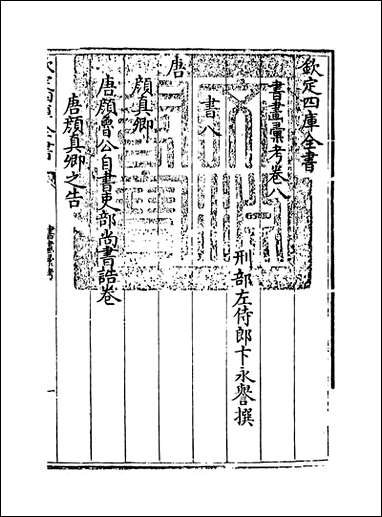 欽定四庫全書
書畫彙考卷八
刑部左侍郎卞永譽撰
書八
唐
顔真卿
唐顔魯公自書吏部尚書誥卷
唐顔真卿之告
欽定四庫全書
書畫彙考
一